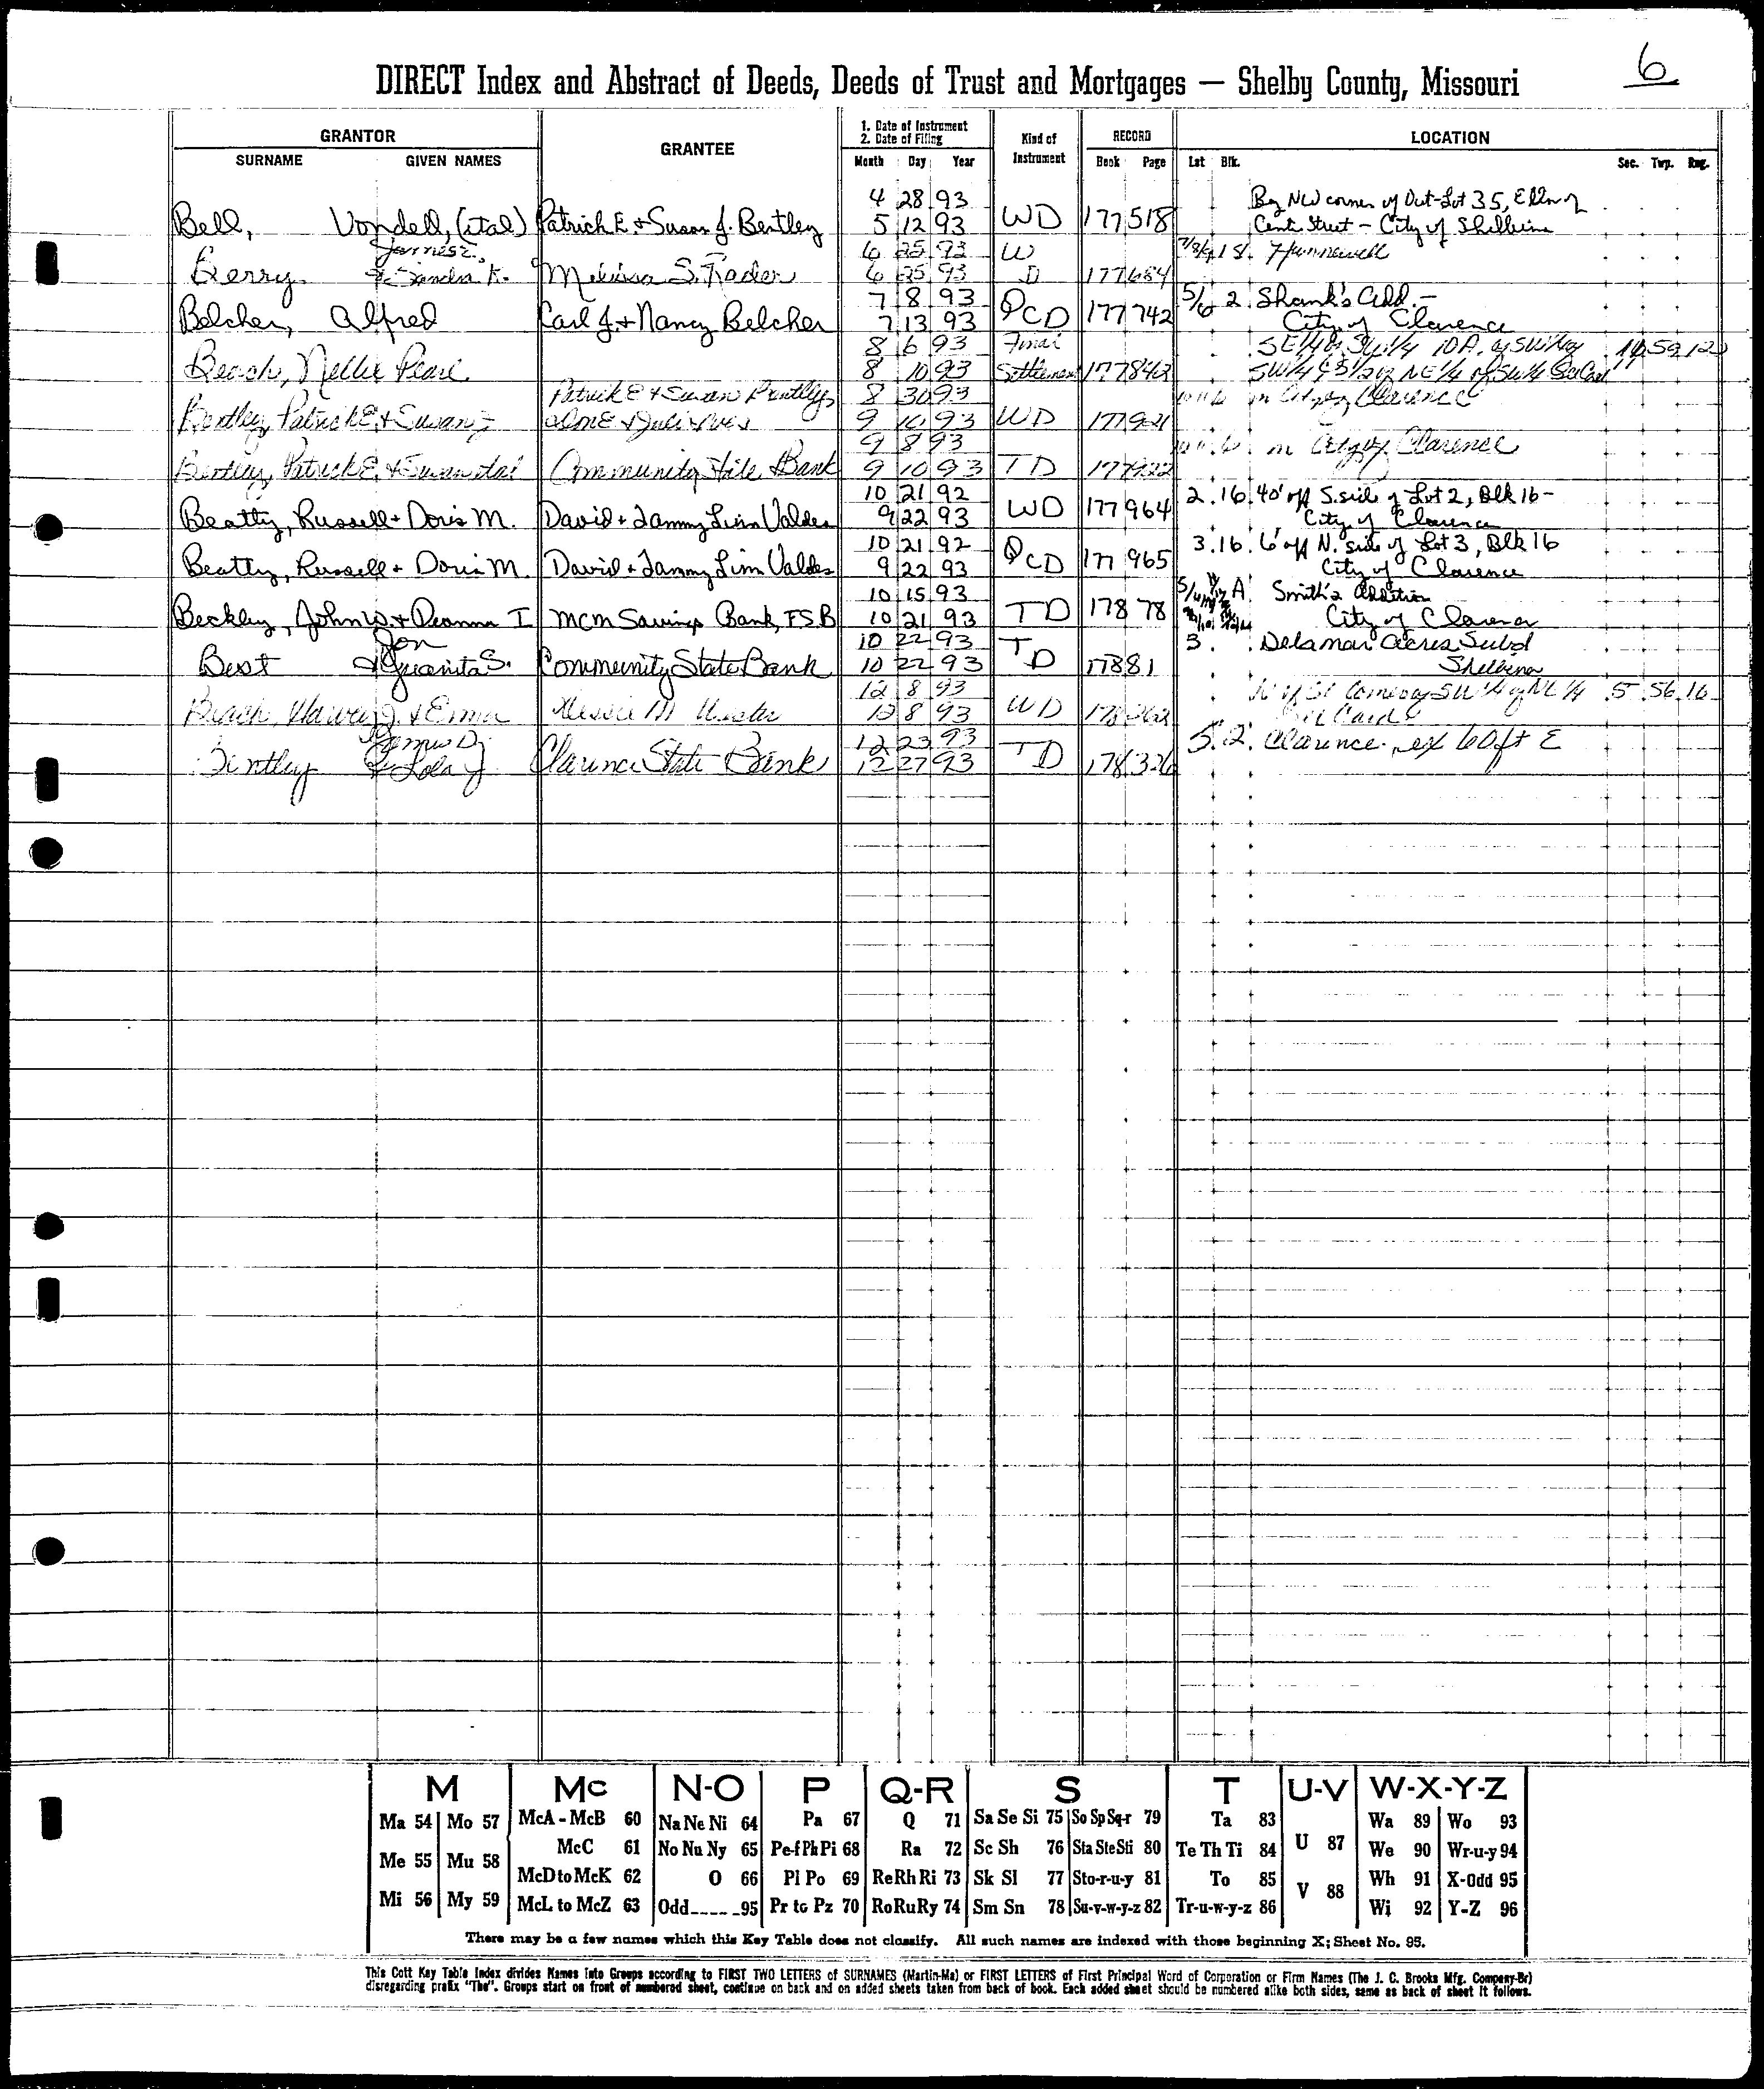 6
DIRECT Index and Abstract of Deeds, Deeds of Trust and Mortgages — Shelby County, Missouri
GRANTOR
SURNAME GIVEN NAMES
GRANTEE
1. Date of Instrument
2. Date of Filing
Month Day Year
Kind of Instrument
RECORD
Book Page
LOCATION
Lot Blk. Sec. Twp. Rng.
4 28 93 Beg NW corner of Out-Lot 35, E line of
Bell, Vondell, (etal) Patrick E + Susan J. Bentley 5 12 93 WD 177 518 Center Street - City of Shelbina
James E. 6 25 93 W 7/8/9 18 Hunnewell
Berry & Sandra K. Melissa S. Rader 6 25 93 D 177 684
7 8 93 5/6 2 Shank's Add. -
Belcher, Alfred Carl J. + Nancy Belcher 7 13 93 QCD 177 742 City of Clarence
8 6 93 Final SE 1/4 SW 1/4 10 A. of SW 1/4 of
Beach, Nellie Pearl 8 10 93 Settlement 177 842 SW 1/4 & S 1/2 of NE 1/4 of SW 1/4 See Card
Patrick E + Susan Bentley 8 30 93 in City of Clarence
Bentley, Patrick E. + Susan J 9 10 93 WD 177 921
9 8 93 in City of Clarence
Bentley, Patrick E. + Susan etal Community State Bank 9 10 93 TD 177 922
10 21 92 2 16 40' off S. side of Lot 2, Blk 16 -
Beatty, Russell + Doris M. David + Tammy Linn Valdes 9 22 93 WD 177 964 City of Clarence
10 21 92 3 16 6' off N. side of Lot 3, Blk 16
Beatty, Russell + Doris M. David + Tammy Linn Valdes 9 22 93 QCD 177 965 City of Clarence
10 15 93 A Smith's Addition
Beckley, John W. + Deanna I MCM Savings Bank, FSB 10 21 93 TD 178 78 City of Clarence
Jon 10 22 93 T 3 Delamar Acres Subd
Best & Juanita S. Community State Bank 10 22 93 D 178 81 Shelbina
12 8 93 SW 1/4 of NE 1/4 5 56 16
Beach, Harvey J. + Erma 12 8 93 WD 178 See Card
12 23 93 5 2 Clarence ex 60 ft E
Bentley & Lola J Clarence State Bank 12 27 93 TD 178 326
M
Ma 54 Mo 57
Me 55 Mu 58
Mi 56 My 59
Mc
McA - McB 60
McC 61
McD to McK 62
McL to McZ 63
N-O
Na Ne Ni 64
No Nu Ny 65
O 66
Odd 95
P
Pa 67
Pe-f Ph Pi 68
Pl Po 69
Pr to Pz 70
Q-R
Q 71
Ra 72
Re Rh Ri 73
Ro Ru Ry 74
S
Sa Se Si 75 So Sp Sq-r 79
Sc Sh 76 Sta Ste Sti 80
Sk Sl 77 Sto-r-u-y 81
Sm Sn 78 Su-v-w-y-z 82
T
Ta 83
Te Th Ti 84
To 85
Tr-u-w-y-z 86
U-V
U 87
V 88
W-X-Y-Z
Wa 89 Wo 93
We 90 Wr-u-y 94
Wh 91 X-Odd 95
Wi 92 Y-Z 96
There may be a few names which this Key Table does not classify. All such names are indexed with those beginning X; Sheet No. 95.
This Cott Key Table Index divides Names into Groups according to FIRST TWO LETTERS of SURNAMES (Martin-Ma) or FIRST LETTERS of First Principal Word of Corporation or Firm Names (The J. C. Brooks Mfg. Company-Br)
disregarding prefix "The". Groups start on front of numbered sheet, continue on back and on added sheets taken from back of book. Each added sheet should be numbered alike both sides, same as back of sheet it follows.